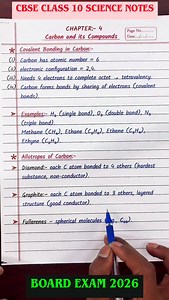 CBSE CLASS 10 SCIENCE NOTES
CHAPTER:- 4
Carbon and its Compounds
Page No.
Date
Covalent Bonding in Carbon:-
(i) Carbon has atomic number = 6
(ii) electronic configuration = 2,4.
(iii) Needs 4 electrons to complete octet → tetravalency.
(iv) Carbon forms bonds by sharing of electrons (covalent
bonds).
Examples:- H₂ (single bond), O₂ (double bond), N₂
(triple bond)
Methane (CH₄), Ethane (C₂H₆), Ethene (C₂H₄),
Ethyne (C₂H₂)
Allotropes of Carbon:-
Diamond:- each C atom bonded to 4 others (hardest
substance, non-conductor).
Graphite:- each C atom bonded to 3 others, layered
structure (good conductor).
Fullerenes - spherical molecules C₆₀).
BOARD EXAM 2026